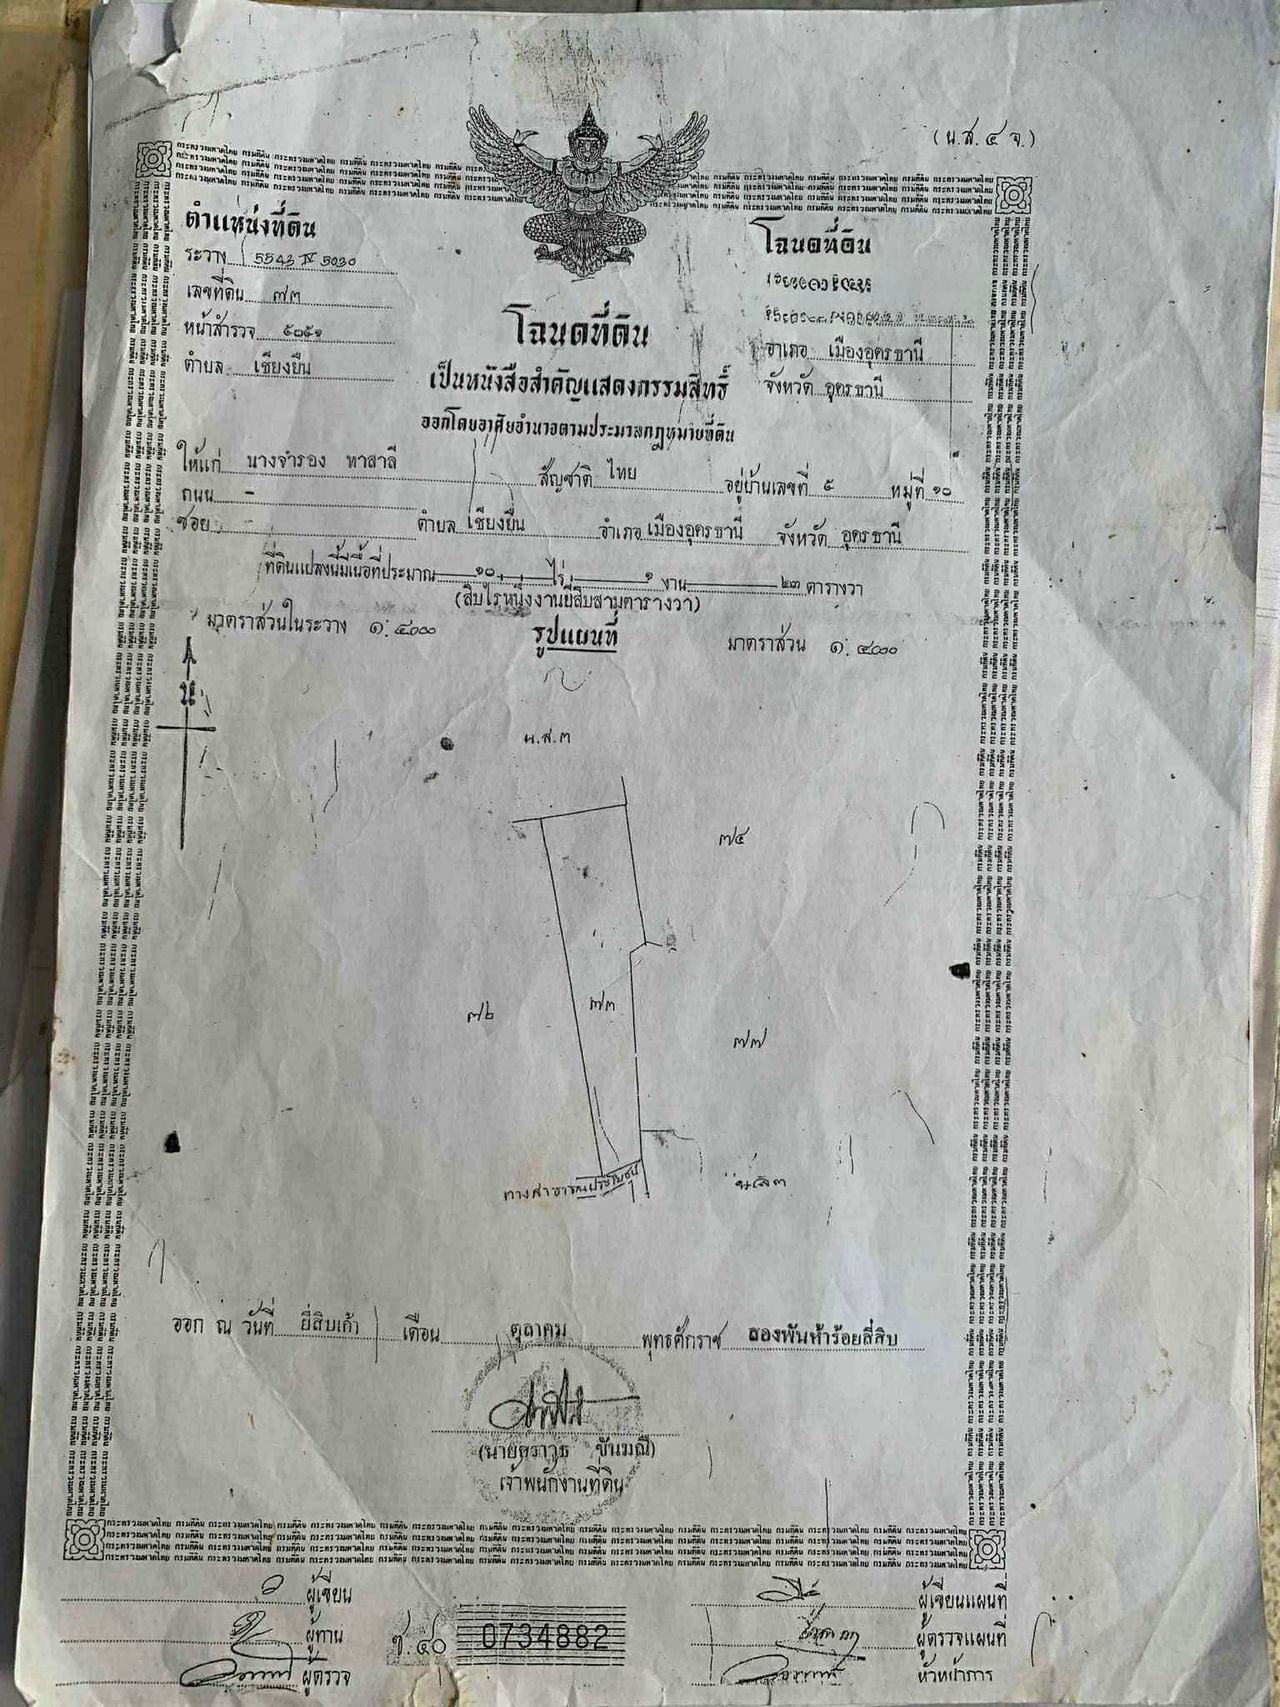 (น.ส. ๔ จ.)
ตำแหน่งที่ดิน
ระวาง 5543 IV 5030
เลขที่ดิน ๗๓
หน้าสำรวจ ๕๐๕๑
ตำบล เชียงยืน
โฉนดที่ดิน
อำเภอ เมืองอุดรธานี
จังหวัด อุดรธานี
โฉนดที่ดิน
เป็นหนังสือสำคัญแสดงกรรมสิทธิ์
ออกโดยอาศัยอำนาจตามประมวลกฎหมายที่ดิน
ให้แก่ นางจำรอง ทาสาลี สัญชาติ ไทย อยู่บ้านเลขที่ ๕ หมู่ที่ ๑๐
ถนน -
ซอย - ตำบล เชียงยืน อำเภอ เมืองอุดรธานี จังหวัด อุดรธานี
ที่ดินแปลงนี้มีเนื้อที่ประมาณ ๑๐ ไร่ ๑ งาน ๒๓ ตารางวา
(สิบไร่หนึ่งงานยี่สิบสามตารางวา)
มาตราส่วนในระวาง ๑:๔๐๐๐ รูปแผนที่ มาตราส่วน ๑:๔๐๐๐
น
น.ส.๓
๗๔
๗๒
๗๓
๗๗
ทางสาธารณประโยชน์
ออก ณ วันที่ ยี่สิบเก้า เดือน ตุลาคม พุทธศักราช สองพันห้าร้อยสี่สิบ
เจ้าพนักงานที่ดิน
ผู้เขียน
ผู้ทาน
ผู้ตรวจ
ช.๔๐ 0734882
ผู้เขียนแผนที่
ผู้ตรวจแผนที่
หัวหน้าการ